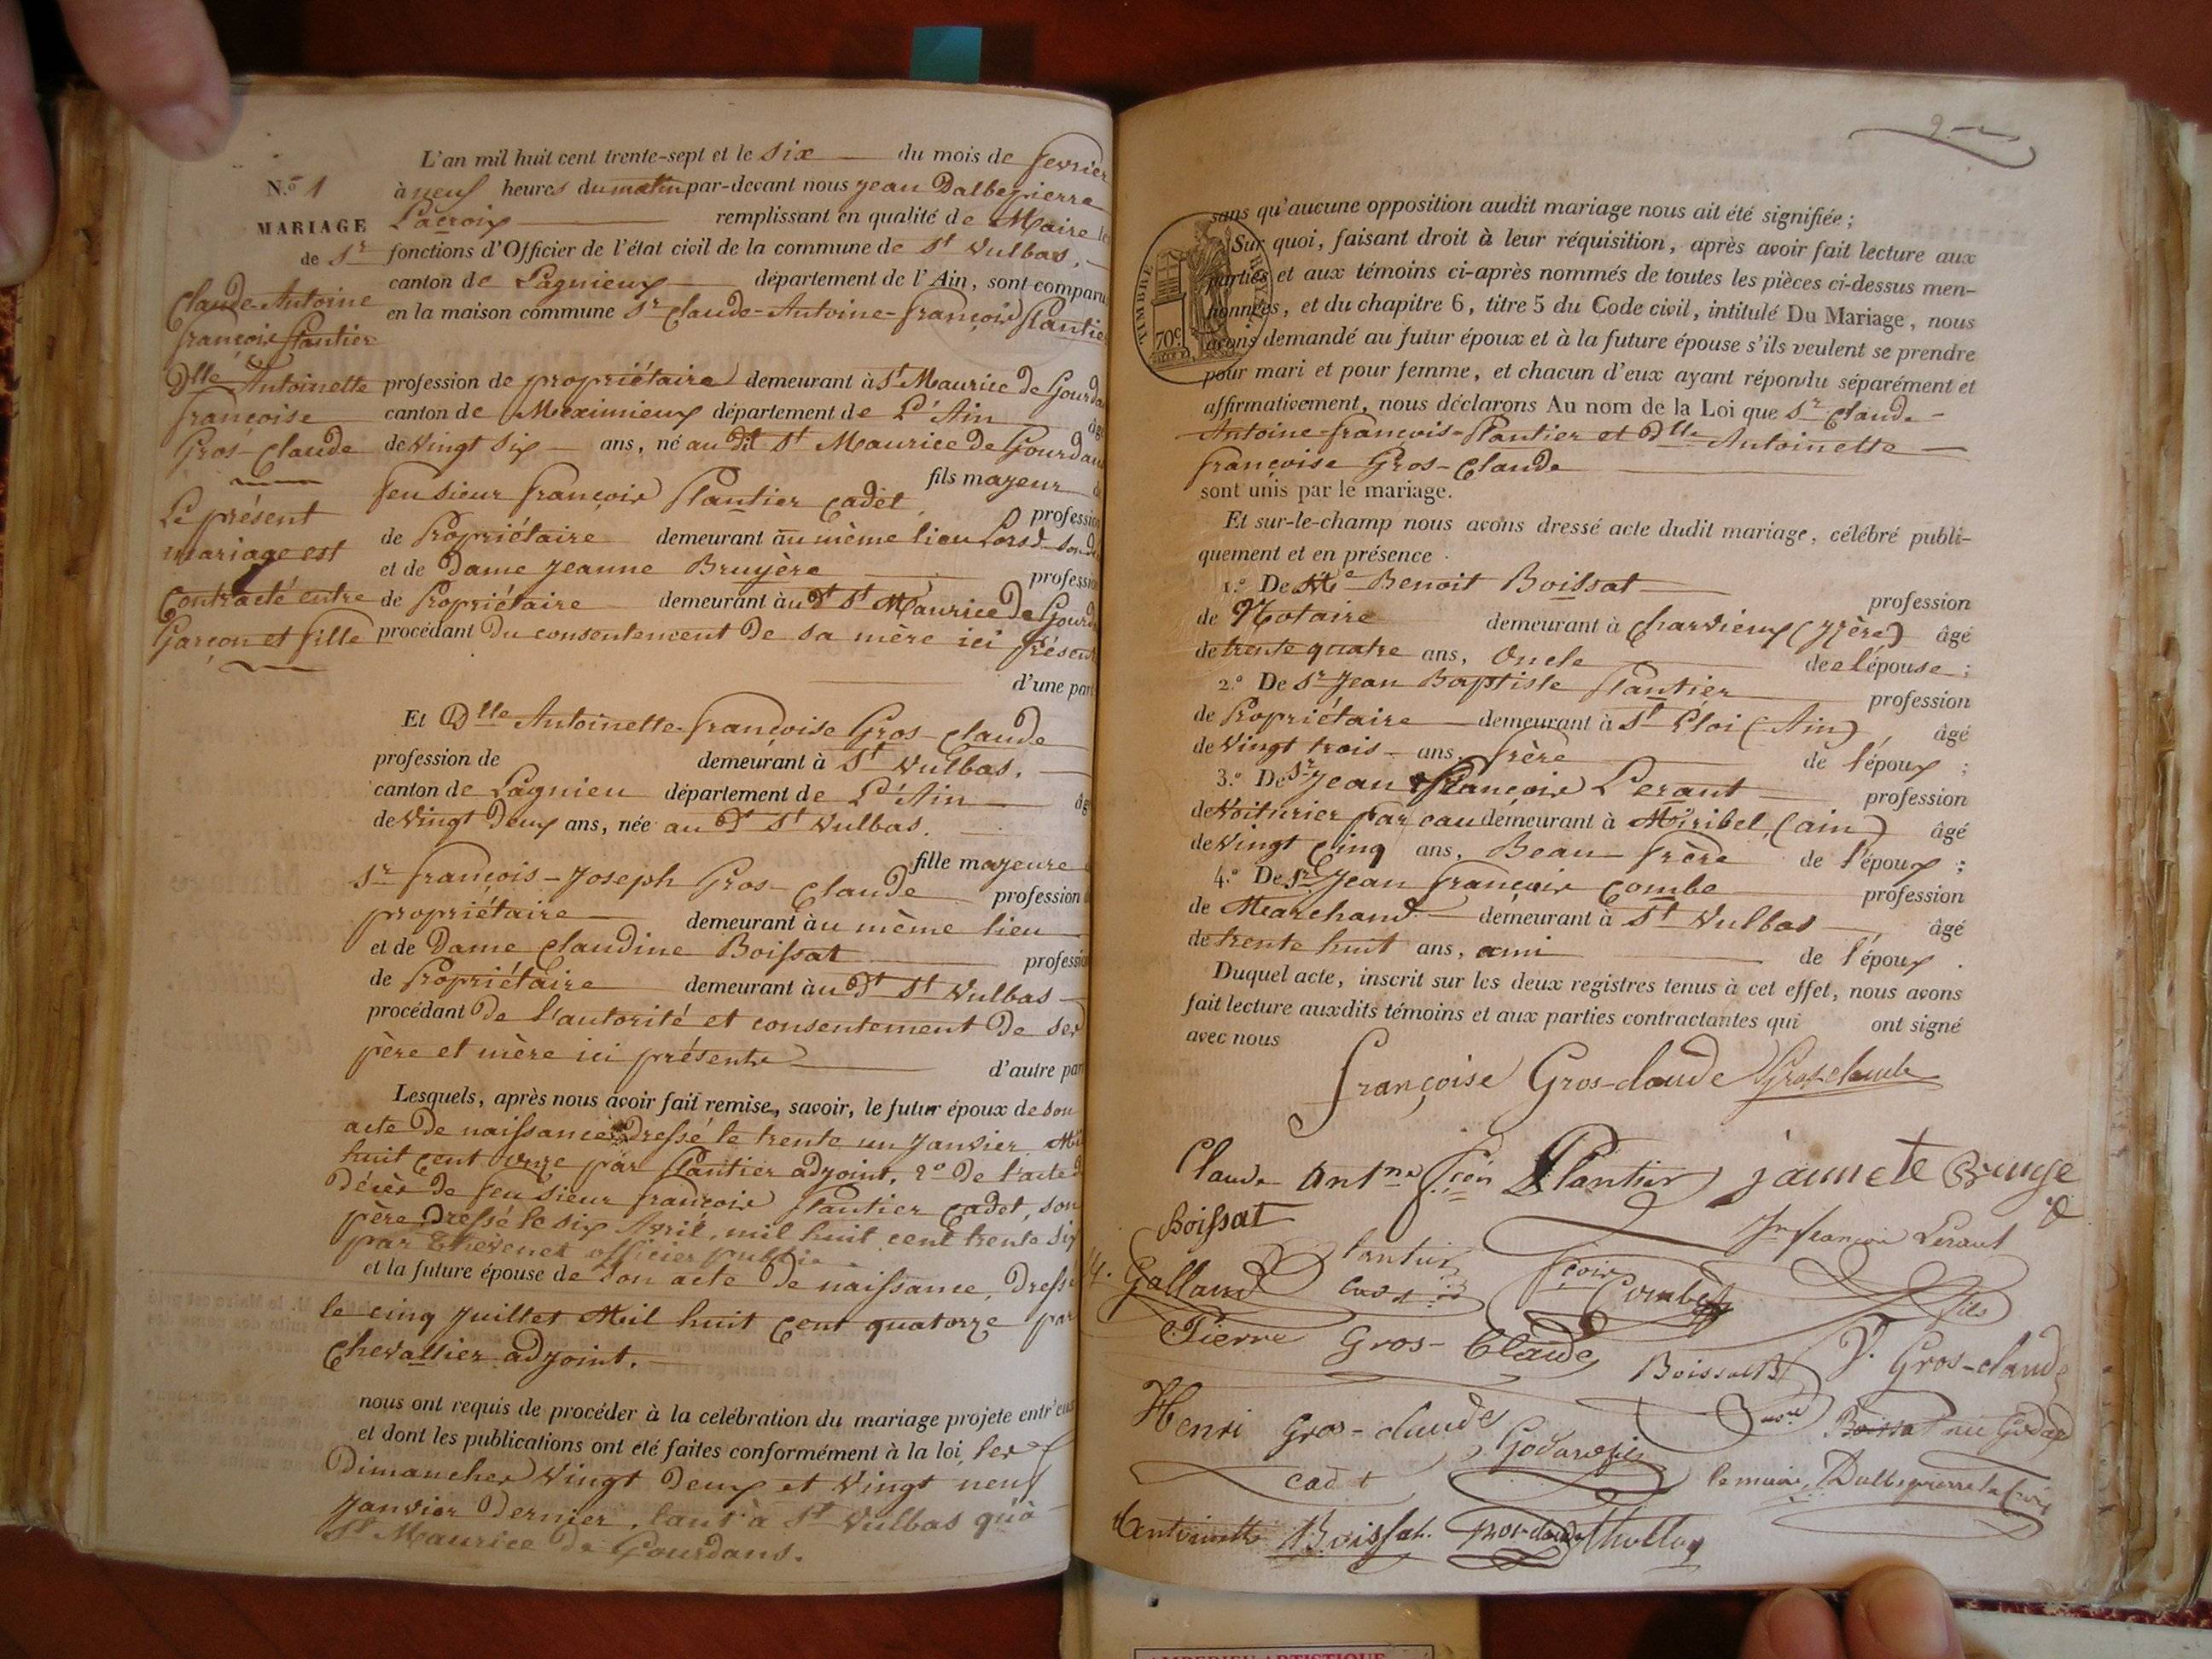 N.º 1
MARIAGE
de Sr
Claude-Antoine
françois Plantier
Dlle Antoinette
françoise
Gros-Claude
Le présent
mariage est
Contracté entre
Garçon et fille
L'an mil huit cent trente-sept et le Six du mois de fevrier
à neuf heures du matin par-devant nous Jean Dalbepierre
Lacroix remplissant en qualité de Maire les
fonctions d'Officier de l'état civil de la commune de St Vulbas,
canton de Lagnieux département de l'Ain, sont comparu
en la maison commune Sr Claude-Antoine-françois Plantier
profession de propriétaire demeurant à St Maurice de Gourda
canton de Meximieux département de L'Ain âgé
de Vingt Six ans, né au dt St Maurice de Gourdans
fils majeur de
feu sieur françois Plantier cadet, profession
de Propriétaire demeurant au même lieu Lors de son
et de Dame Jeanne Bruyère profession
de Propriétaire demeurant au dt St Maurice De Gourd
procédant Du consentement De sa mère ici présente
d'une part
Et Dlle Antoinette-françoise Gros-Claude
profession de demeurant à St Vulbas,
canton de Lagnieu département de L'Ain âgé
de Vingt Deux ans, née au dt St Vulbas.
fille majeure
Sr françois-Joseph Gros-Claude profession
propriétaire demeurant au même lieu
et de Dame Claudine Boissat profession
de Propriétaire demeurant au dt St Vulbas
procédant De l'autorité et consentement De ses
père et mère ici présents
d'autre part
Lesquels, après nous avoir fait remise, savoir, le futur époux de son
acte De naissance Dressé le trente un Janvier Mil
huit Cent onze par Plantier adjoint, 2º De l'acte de
Décès De feu Sieur françois Plantier Cadet, son
père Dressé le six Avril, mil huit cent trente six
par Thévenet officier public.
et la future épouse de son acte De naissance, Dressé
le cinq Juillet Mil huit Cent quatorze par
Chevallier adjoint.
nous ont requis de procéder à la célébration du mariage projeté entr'eux
et dont les publications ont été faites conformément à la loi, les
Dimanches Vingt Deux et Vingt neuf
Janvier Dernier, tant à St Vulbas qu'à
St Maurice De Gourdans.
TIMBRE
70c.
sans qu'aucune opposition audit mariage nous ait été signifiée ;
Sur quoi, faisant droit à leur réquisition, après avoir fait lecture aux
parties et aux témoins ci-après nommés de toutes les pièces ci-dessus men-
tionnées, et du chapitre 6, titre 5 du Code civil, intitulé Du Mariage, nous
avons demandé au futur époux et à la future épouse s'ils veulent se prendre
pour mari et pour femme, et chacun d'eux ayant répondu séparément et
affirmativement, nous déclarons Au nom de la Loi que Sr Claude-
Antoine-françois-Plantier et Dlle Antoinette
françoise Gros-Claude
sont unis par le mariage.
Et sur-le-champ nous avons dressé acte dudit mariage, célébré publi-
quement et en présence
1.º De Me Benoit Boissat profession
de Notaire demeurant à Charvieux (Isère) âgé
de trente quatre ans, Oncle de l'épouse ;
2.º De Sr Jean Baptiste Plantier profession
de Propriétaire demeurant à St Eloi (Ain), âgé
de Vingt trois ans, frère de l'époux ;
3.º De Sr Jean François Lerant profession
de Voiturier par eau demeurant à Miribel (ain) âgé
de Vingt Cinq ans, Beau-frère de l'époux ;
4.º De Sr Jean françois Combe profession
de Marchand demeurant à St Vulbas, âgé
de trente huit ans, ami de l'époux.
Duquel acte, inscrit sur les deux registres tenus à cet effet, nous avons
fait lecture auxdits témoins et aux parties contractantes qui ont signé
avec nous
françoise Gros-claude Gros-claude
Claude Antne fçois Plantier
Boissat
Jn françois Lerant
Galland
fçois Combe
fils
Pierre Gros-Claude
Boissat
V. Gros-claude
Henri Gros-claude
Godard fils
Boissat née Godard
cadet
le maire, Dalbepierre la Croix
Antoinette Boissat.